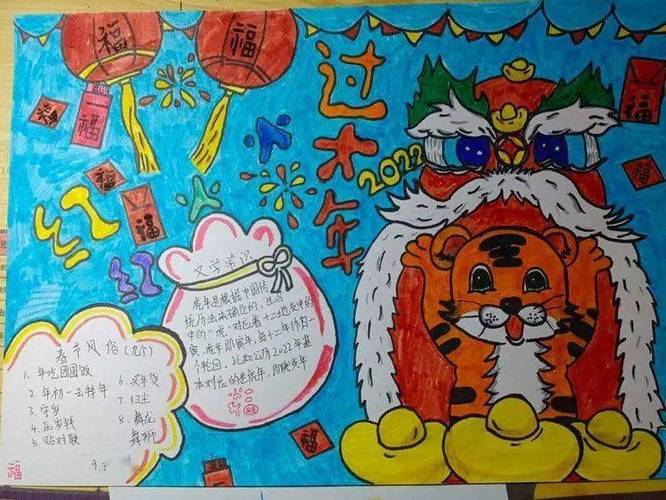 福
福
福
福
福
福
红红火火
过大年
2022
王
文学常识
虎年是根据中国传
统历法来确定的，生肖
中的"虎"对应着十二地支中的
寅，虎年即寅年，每十二年作为一
个轮回，比如公历2022年基
本对应的是虎年，即
春节风俗（九个）
1. 年吃团圆饭
2. 年初一去拜年
3. 守岁
4. 压岁钱
5. 贴对联
6. 买年货
7. 扫尘
8. 舞龙
舞狮
9.
福
福
福